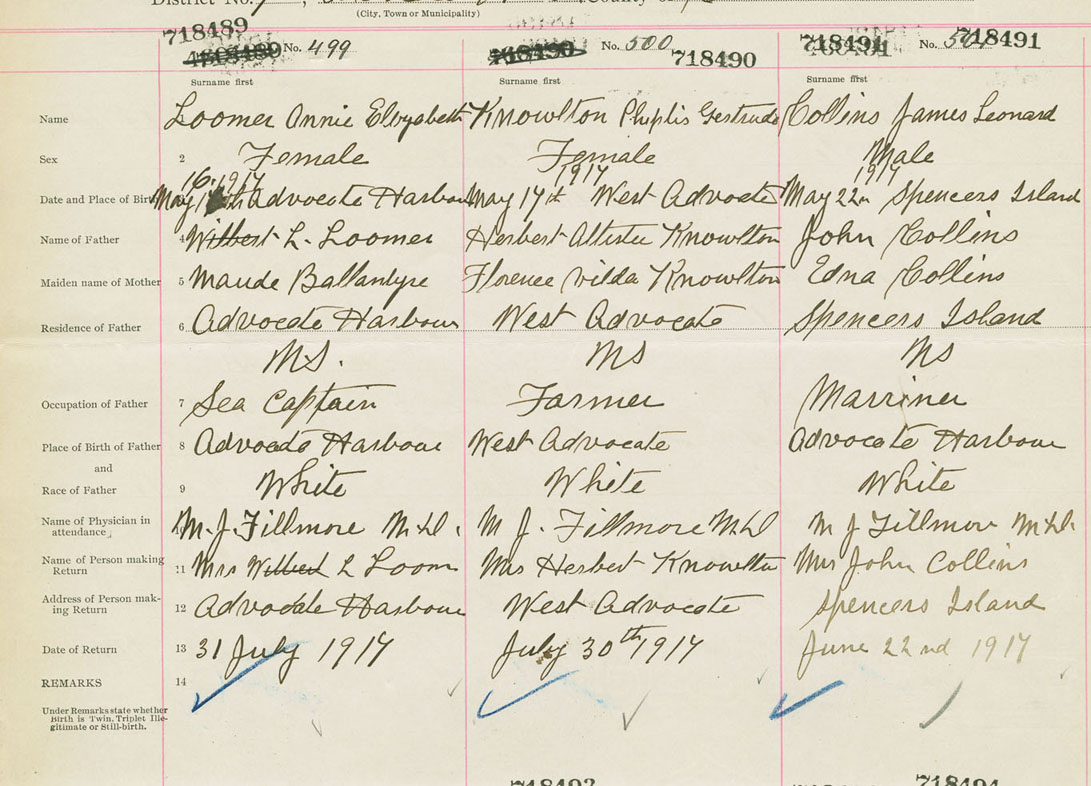 District No.
(City, Town or Municipality)
718489 No. 499
No. 500 718490
718491 No. 501 718491
Surname first Surname first Surname first
Name Loomer Annie Elizabeth Knowlton Phyllis Gertrude Collins James Leonard
Sex 2 Female Female Male
16, 1917 1917 1917
Date and Place of Birth May Advocate Harbour May 17th West Advocate May 22n Spencers Island
Name of Father 4 Wilbert L. Loomer Herbert Knowlton John Collins
Maiden name of Mother 5 Maude Ballantyne Florence Vilda Knowlton Edna Collins
Residence of Father 6 Advocate Harbour West Advocate Spencers Island
MS. MS MS
Occupation of Father 7 Sea Captain Farmer Marriner
Place of Birth of Father 8 Advocate Harbour West Advocate Advocate Harbour
and
Race of Father 9 White White White
Name of Physician in M. J. Fillmore M.D. M J. Fillmore M.D M J Fillmore M.D.
attendance
Name of Person making
Return 11 Mrs Wilbert L Loom Mrs Herbert Knowlton Mrs John Collins
Address of Person mak-
ing Return 12 Advocate Harbour West Advocate Spencers Island
Date of Return 13 31 July 1917 July 30th 1917 June 22nd 1917
REMARKS 14
Under Remarks state whether
Birth is Twin, Triplet Ille-
gitimate or Still-birth.